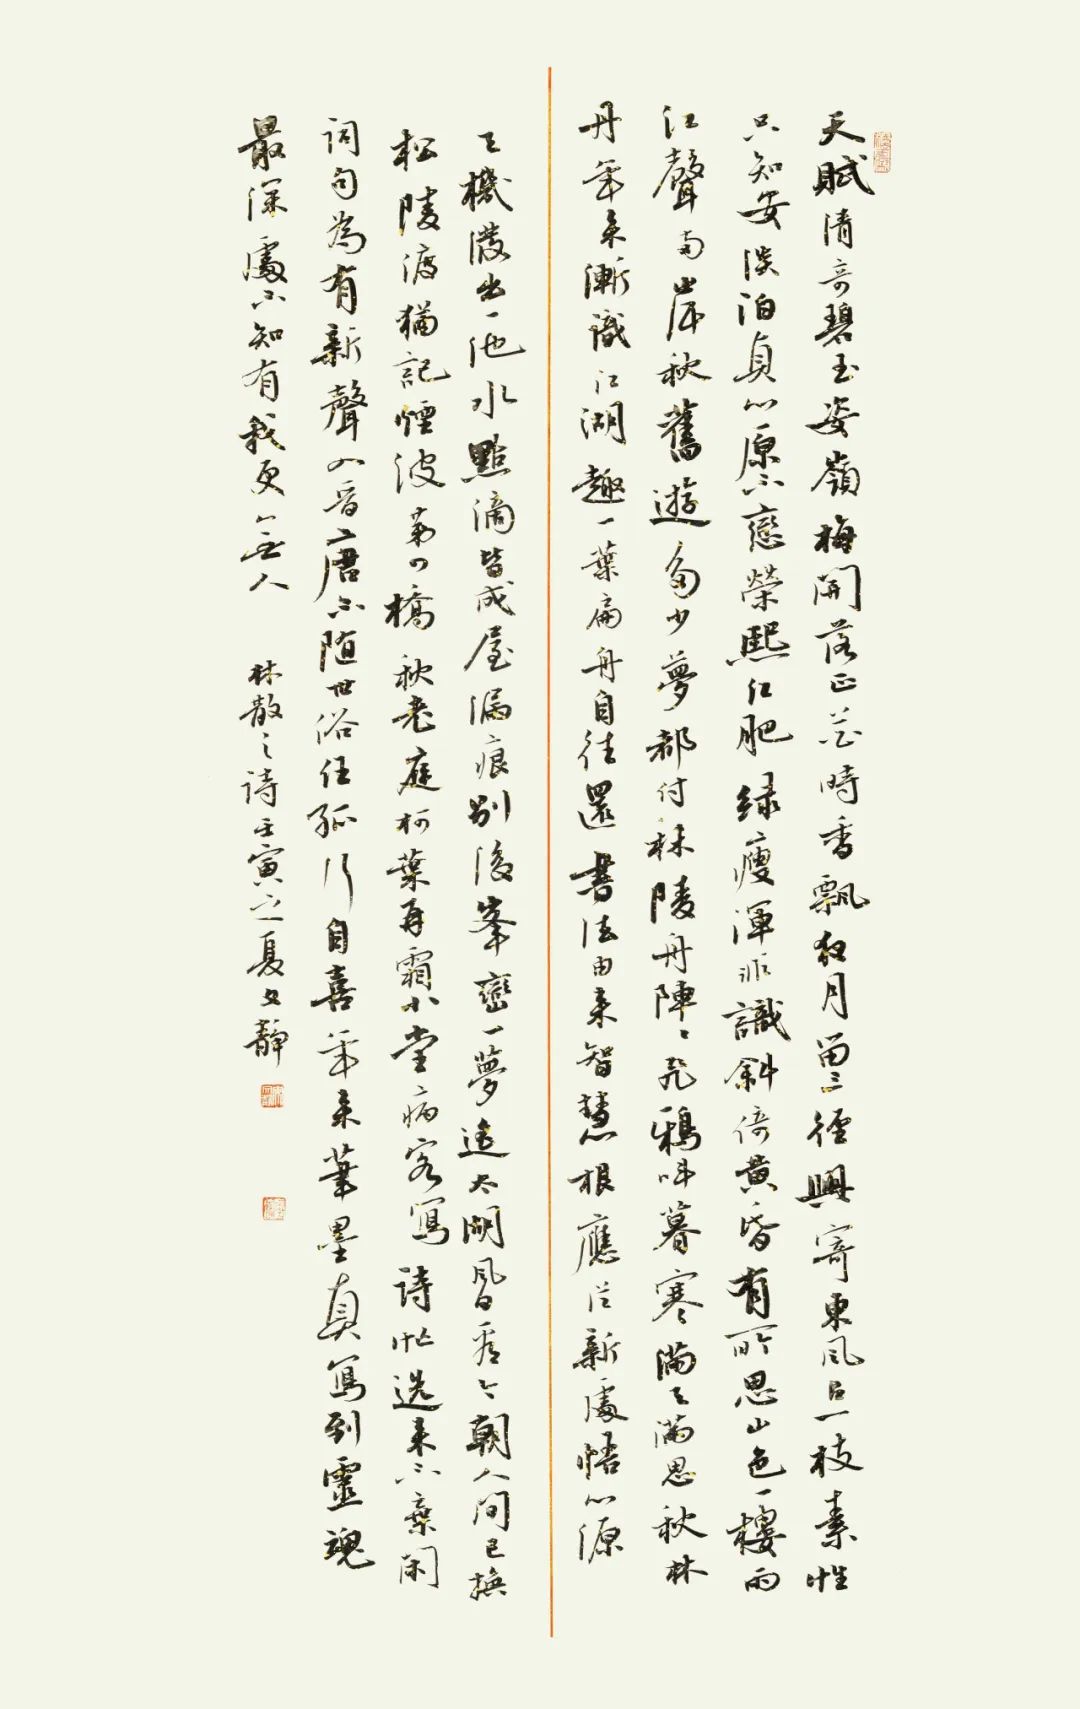 天賦清奇碧玉姿嶺梅開落正花時香飄夜月留三徑興寄東風占一枝素性
只知安淡泊貞心原不戀榮熙紅肥绿瘦渾非識斜倚黄昏有所思山色一樓雨
江聲兩岸秋舊遊多少夢都付秣陵舟陣〻飛鴉叫暮寒滿天滿思秋林
丹年来漸識江湖趣一葉扁舟自往還書法由来智慧根應從新處悟心源
天機潑出一池水點滴皆成屋漏痕別後峯巒一夢遙太湖風月看今朝人間已換
松陵渡猶記煙波第四橋秋老庭柯葉再霜小堂病客寫詩忙选来不棄閑
詞句為有新聲入晉唐不随世俗任孤行自喜年来筆墨真寫到靈魂
最深處不知有我更無人
林散之詩壬寅之夏文靜